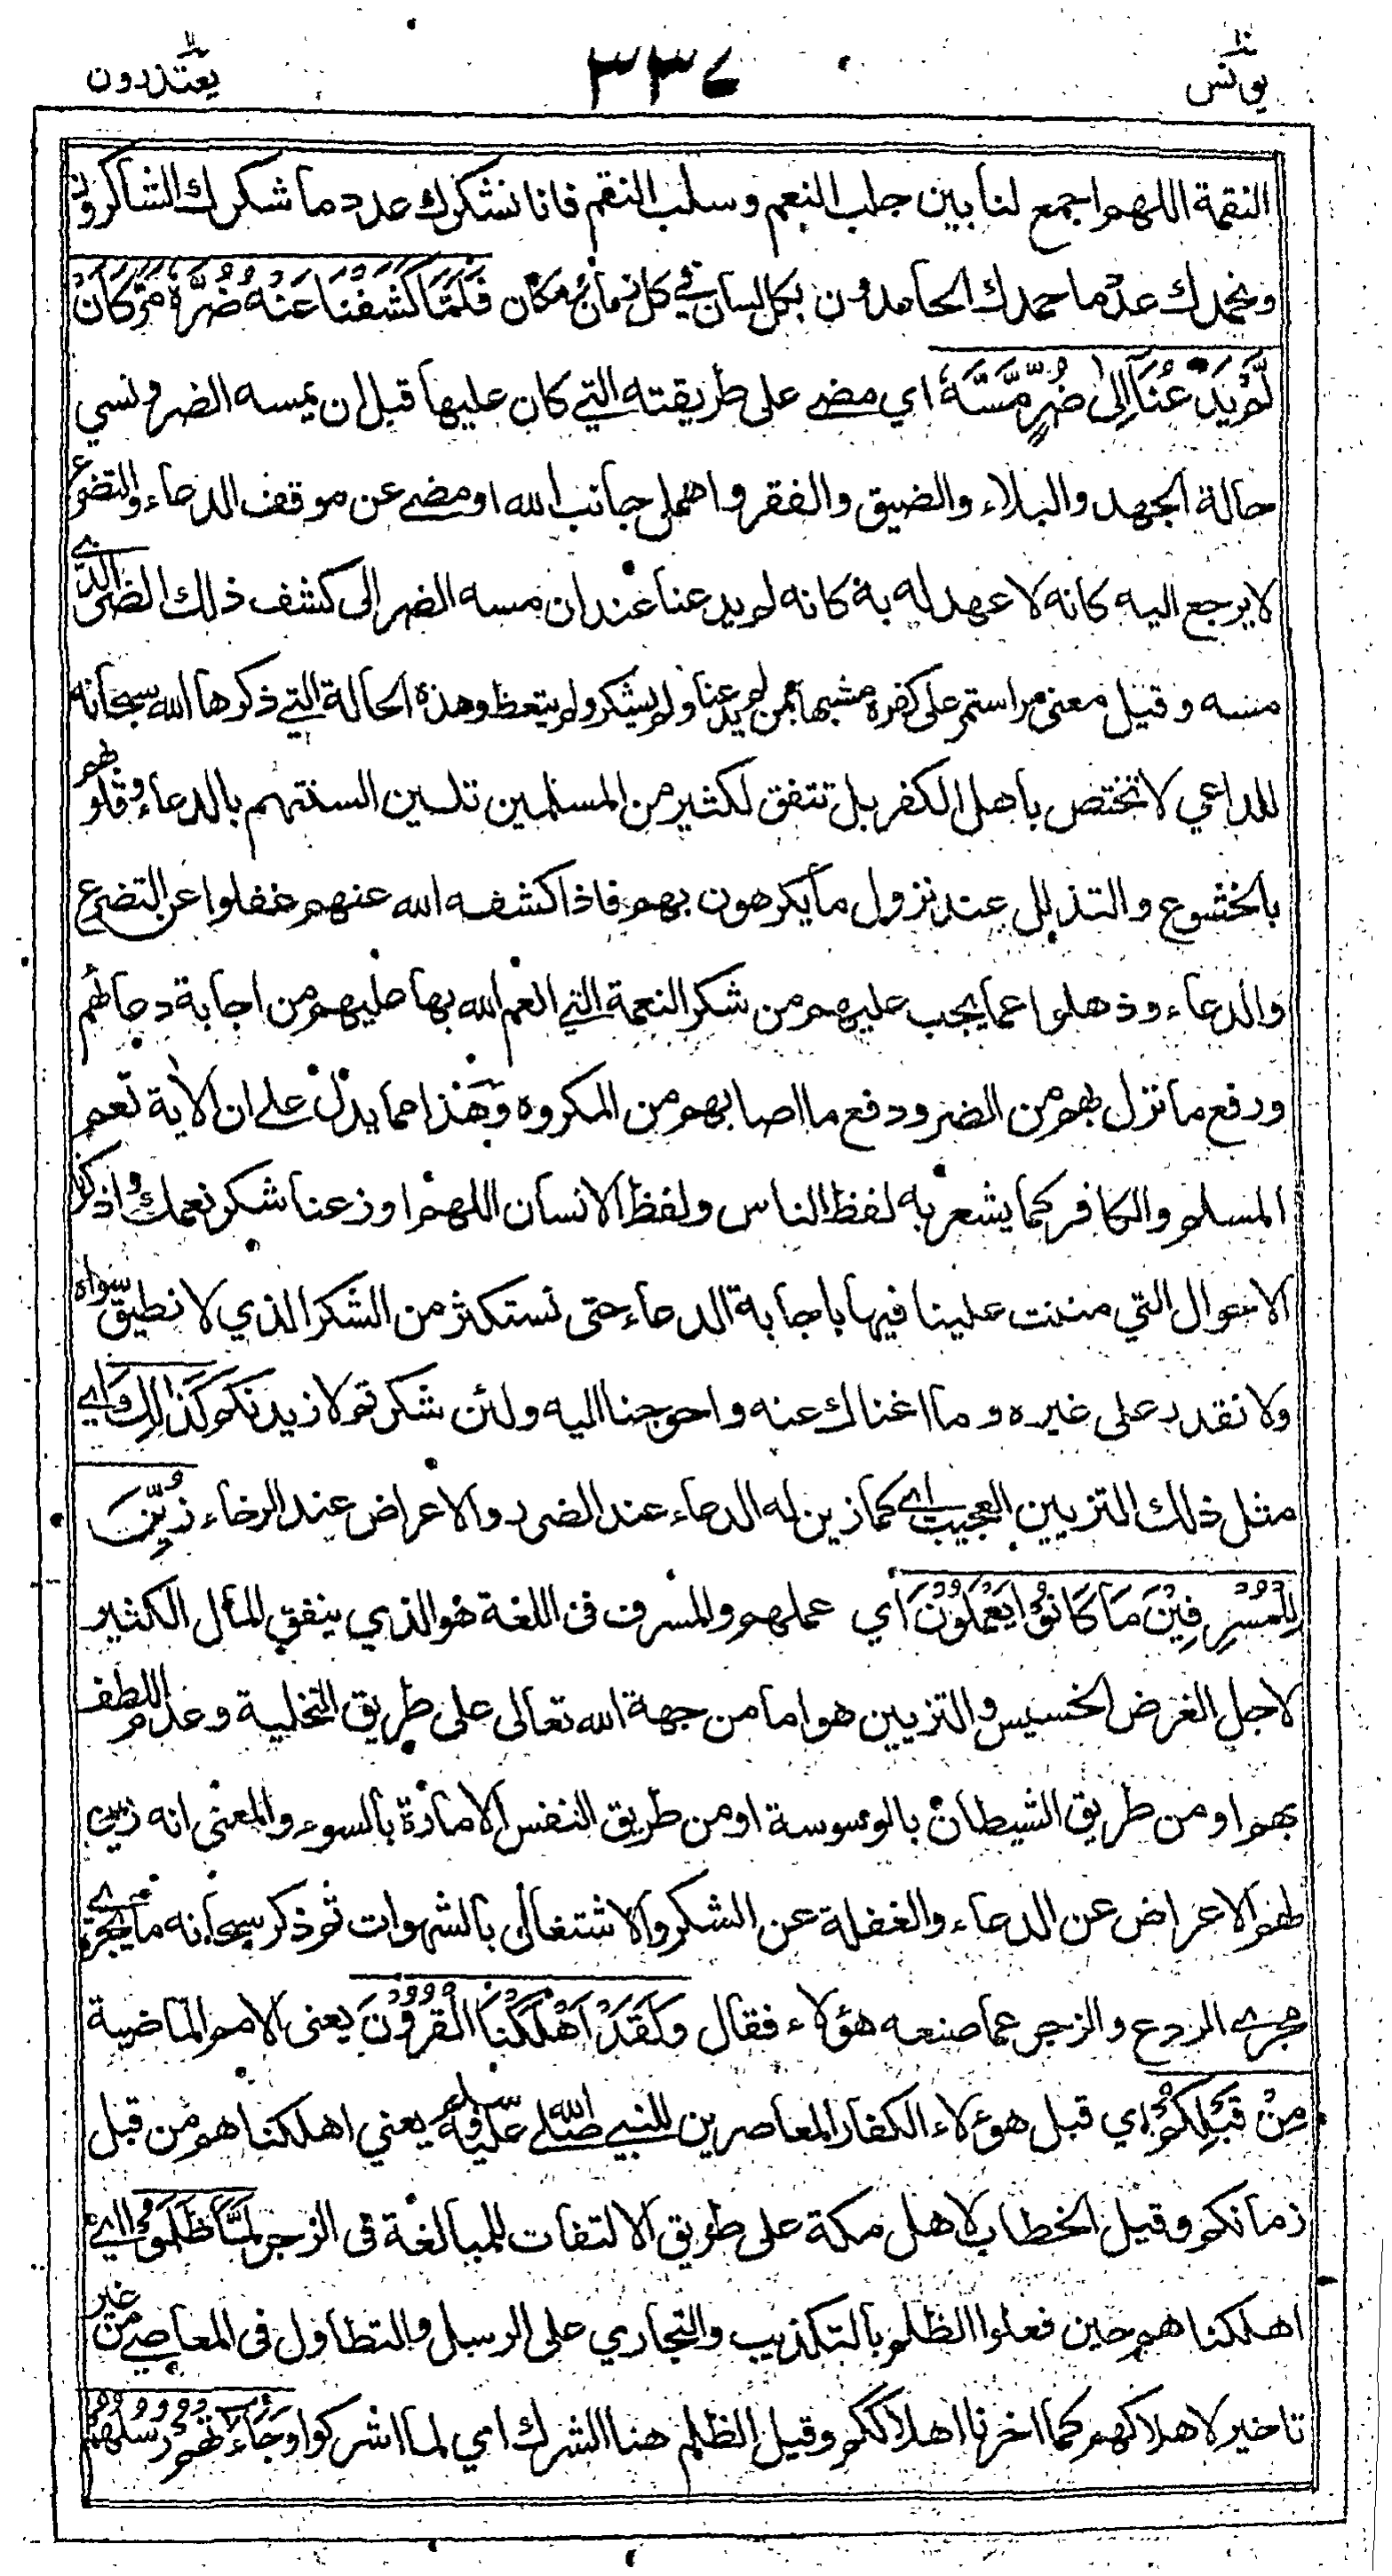 يونس ١٠
٣٣٧
يعتذرون ١١
النقمة اللهم اجمع لنا بين جلب النعم وسلب النقم فانا نشكرك عدد ما شكرك الشاكرون
ونحمدك عدد ما حمدك الحامدون بكل لسان في كل زمان ومكان فَلَمَّا كَشَفْنَا عَنْهُ ضُرَّهُ مَرَّ كَاَنْ
لَّمْ يَدْعُنَآ اِلٰى ضُرٍّ مَّسَّهٗ اي مضى على طريقته التي كان عليها قبل ان يمسه الضر ونسي
حالة الجهد والبلاء والضيق والفقر واهمل جانب الله او مضى عن موقف الدعاء والتضرع
لا يرجع اليه كانه لا عهد له به كانه لم يدعنا عند ان مسه الضر الى كشف ذلك الضر الذي
مسه وقيل معنى مر استمر على كفره مشبها بمن لم يدعنا ولم يشكر ولم يتعظ وهذه الحالة التي ذكرها الله سبحانه
للداعي لا تختص باهل الكفر بل تتفق لكثير من المسلمين تلين السنتهم بالدعاء وقلوبهم
بالخشوع والتذلل عند نزول ما يكرهون بهم فاذا كشفه الله عنهم غفلوا عن التضرع
والدعاء وذهلوا عما يجب عليهم من شكر النعمة التي انعم الله بها عليهم من اجابة دعائهم
ورفع ما نزل بهم من الضر ودفع ما اصابهم من المكروه وهذا مما يدل على ان الآية تعم
المسلم والكافر كما يشعر به لفظ الناس ولفظ الانسان اللهم اوزعنا شكر نعمك واذكرنا
الاحوال التي مننت علينا فيها باجابة الدعاء حتى نستكثر من الشكر الذي لا نطيق سواه
ولا نقدر على غيره وما اغناك عنه واحوجنا اليه ولئن شكرتم لازيدنكم كَذٰلِكَ اي
مثل ذلك التزيين العجيب اي كما زين له الدعاء عند الضر والاعراض عند الرخاء زُيِّنَ
لِلْمُسْرِفِيْنَ مَا كَانُوْا يَعْمَلُوْنَ اي عملهم والمسرف في اللغة هو الذي ينفق المال الكثير
لاجل الغرض الخسيس والتزيين هو اما من جهة الله تعالى على طريق التخلية وعدم اللطف
بهم او من طريق الشيطان بالوسوسة او من طريق النفس الامارة بالسوء والمعنى انه زين
لهم الاعراض عن الدعاء والغفلة عن الشكر والاشتغال بالشهوات ثم ذكر سبحانه ما يجري
مجرى الردع والزجر عما صنعه هؤلاء فقال وَلَقَدْ اَهْلَكْنَا الْقُرُوْنَ يعنى الامم الماضية
مِنْ قَبْلِكُمْ اي قبل هؤلاء الكفار المعاصرين للنبي صلى الله عليه وسلم يعني اهلكناهم من قبل
زمانكم وقيل الخطاب لاهل مكة على طريق الالتفات للمبالغة في الزجر لَمَّا ظَلَمُوْا اي
اهلكناهم حين فعلوا الظلم بالتكذيب والتجاري على الرسل والتطاول في المعاصي من غير
تاخير لاهلاكهم كما اخرنا اهلاككم وقيل الظلم هنا الشرك اي لما اشركوا وَجَآءَتْهُمْ رُسُلُهُمْ